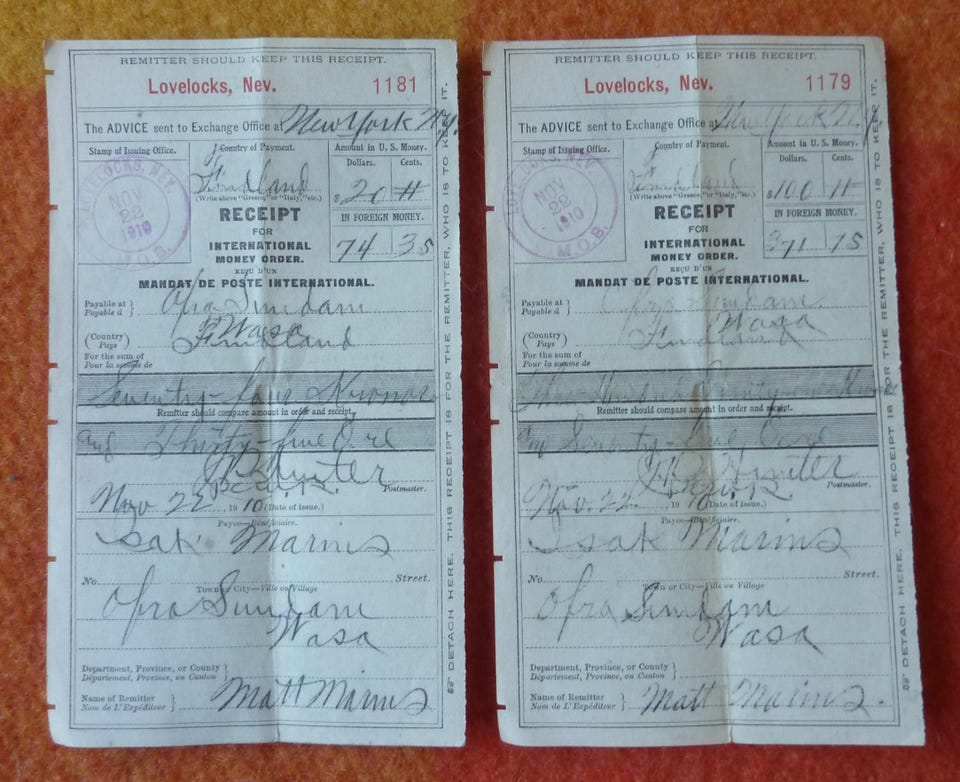 REMITTER SHOULD KEEP THIS RECEIPT.
Lovelocks, Nev. 1181
The ADVICE sent to Exchange Office at New York N.Y.
Stamp of Issuing Office.
LOVELOCKS, NEV.
NOV
22
1910
M.O.B.
Country of Payment.
Findland
(Write above "Greece," or "Italy," etc.)
Amount in U. S. Money.
Dollars. Cents.
$20
IN FOREIGN MONEY.
74 35
RECEIPT
FOR
INTERNATIONAL
MONEY ORDER.
REÇU D'UN
MANDAT DE POSTE INTERNATIONAL.
Payable at
Payable à
Wasa
(Country)
Pays
Findland
For the sum of
Pour la somme de
Seventy-four Kronor
Remitter should compare amount in order and receipt.
and Thirty-five Ore
Hunter
Postmaster.
Nov 22 1910 (Date of Issue.)
Payee—Bénéficiaire.
Isak
No. Street.
Town or City—Ville ou Village
Wasa
Department, Province, or County
Département, Province, ou Canton
Name of Remitter
Nom de L'Expéditeur
Matt
DETACH HERE. THIS RECEIPT IS FOR THE REMITTER, WHO IS TO KEEP IT.
REMITTER SHOULD KEEP THIS RECEIPT.
Lovelocks, Nev. 1179
The ADVICE sent to Exchange Office at New York N.Y.
Stamp of Issuing Office.
LOVELOCKS, NEV.
NOV
22
1910
M.O.B.
Country of Payment.
(Write above "Greece," or "Italy," etc.)
Amount in U. S. Money.
Dollars. Cents.
$100
IN FOREIGN MONEY.
371 75
RECEIPT
FOR
INTERNATIONAL
MONEY ORDER.
REÇU D'UN
MANDAT DE POSTE INTERNATIONAL.
Payable at
Payable à
Wasa
(Country)
Pays
Findland
For the sum of
Pour la somme de
Remitter should compare amount in order and receipt.
and Seventy-five
Hunter
Postmaster.
Nov. 22 1910 (Date of Issue.)
Payee—Bénéficiaire.
Isak
No. Street.
Town or City—Ville ou Village
Wasa
Department, Province, or County
Département, Province, ou Canton
Name of Remitter
Nom de L'Expéditeur
Matt
DETACH HERE. THIS RECEIPT IS FOR THE REMITTER, WHO IS TO KEEP IT.